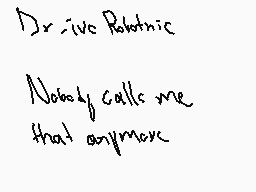 Dr. ive Robotnic
Nobody calls me
that anymore